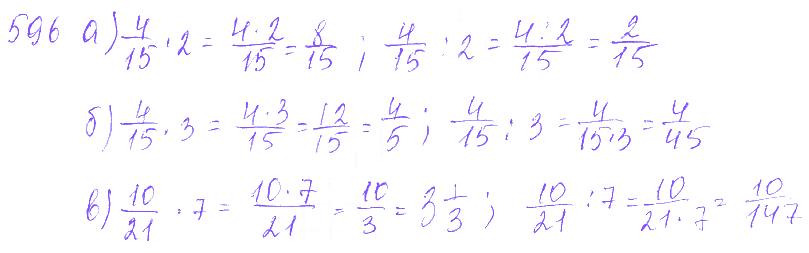 596 а) 4/15 · 2 = 4·2/15 = 8/15 ; 4/15 : 2 = 4:2/15 = 2/15
б) 4/15 · 3 = 4·3/15 = 12/15 = 4/5 ; 4/15 : 3 = 4/15·3 = 4/45
в) 10/21 · 7 = 10·7/21 = 10/3 = 3 1/3 ; 10/21 : 7 = 10/21·7 = 10/147